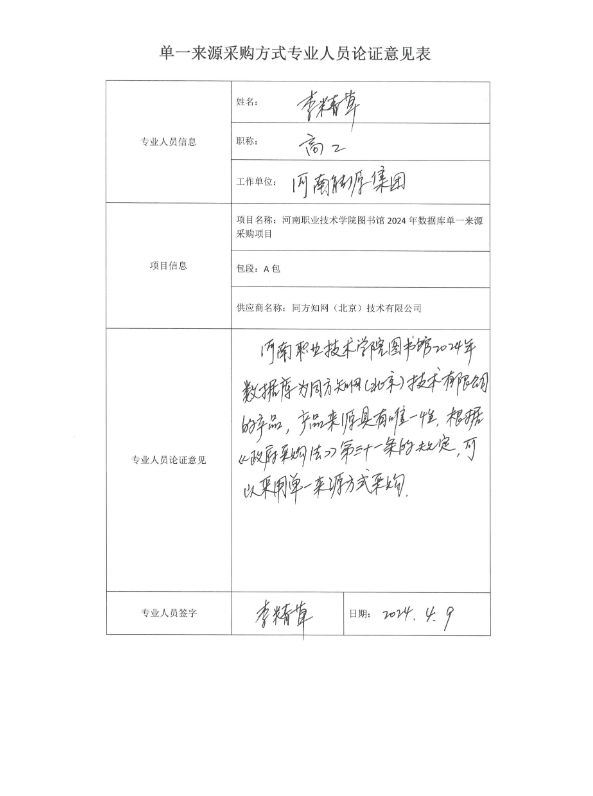 单一来源采购方式专业人员论证意见表
专业人员信息
姓名：李精华
职称：高工
工作单位：河南能源集团
项目信息
项目名称：河南职业技术学院图书馆 2024 年数据库单一来源
采购项目
包段：A 包
供应商名称：同方知网（北京）技术有限公司
专业人员论证意见
河南职业技术学院图书馆2024年
数据库为同方知网（北京）技术有限公司
的产品，产品来源具有唯一性．根据
《政府采购法》第三十一条的规定，可
以采用单一来源方式采购．
专业人员签字
李精华
日期：2024.4.9